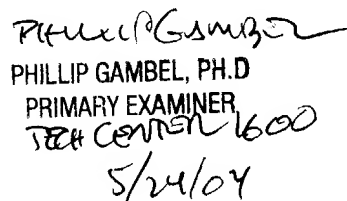 PHILLIP GAMBEL
PHILLIP GAMBEL, PH.D
PRIMARY EXAMINER
TECH CENTER 1600
5/24/04